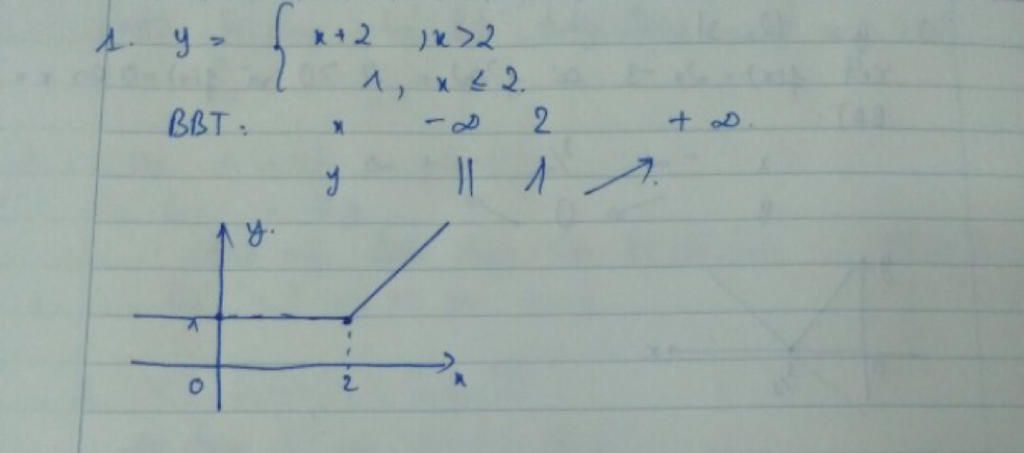 1. y = { x+2 , x>2
1, x ≤ 2.
BBT: x -∞ 2 +∞.
y || 1 ↗.
y.
1
0 2 x